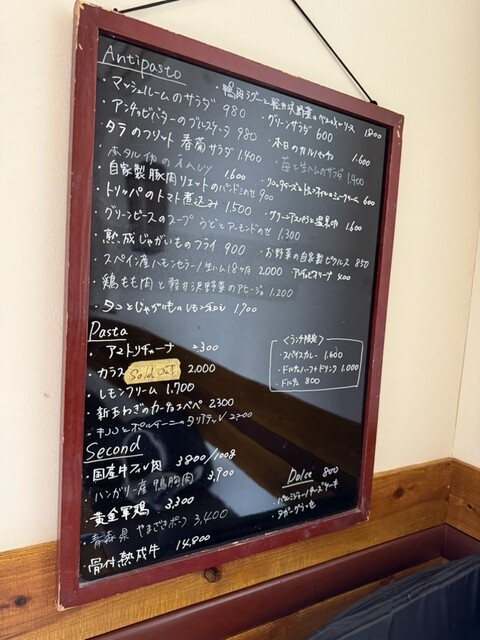 Antipasto
・マッシュルームのサラダ 980
・アンチョビバターのブルスケッタ 980
・タラのフリット 春菊サラダ 1.400
・ホタルイカ 1.600
・自家製豚肉リエットのパンドミのせ 900
・トリッパのトマト煮込み 1.500
・グリーンピースのスープ うどとアーモンドのせ 1.300
・熟成じゃがいものフライ 900
・スペイン産ハモンセラーノ生ハム18ヶ月 2.000
・鶏もも肉と軽井沢野菜のアヒージョ 1.200
・タコとじゃがいものレモン和え 1700
・鴨肉ラグーと軽井沢野菜の 1800
・グリーンサラダ 600
・本日のカルパッチョ 1.600
・苺と生ハムのサラダ 1.400
600
・グリーンアスパラと温泉卵 1.600
・お野菜の自家製ピクルス 850
400
Pasta
・アマトリチャーナ 2.300
・カラス Sold out 2,000
・レモンクリーム 1.700
・新玉ねぎのカーチョエペペ 2300
・キノコとポルチーニのタリアテッレ 2,200
<ランチ限定>
・スパイスカレー 1.600
・ドルチェハーフ+ドリンク 1.000
・ドルチェ 800
Second
・国産牛フィレ肉 3800/100g
・ハンガリー産 鴨胸肉 3,900
・黄金軍鶏 3,300
・青森県 やまざきポーク 3,400
・骨付熟成牛 14,800
Dolce 800